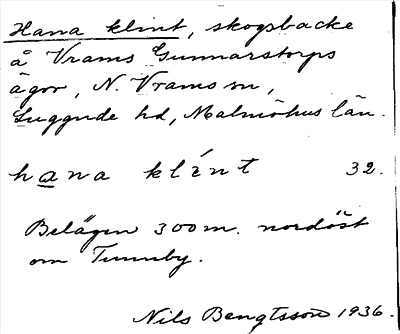 Hana klint, skogsbacke
å Vrams Gunnarstorps
ägor, N. Vrams sn,
Luggude hd, Malmöhus län.
hana klint 32.
Belägen 300 m. nordöst
om Tunnby.
Nils Bengtsson 1936.